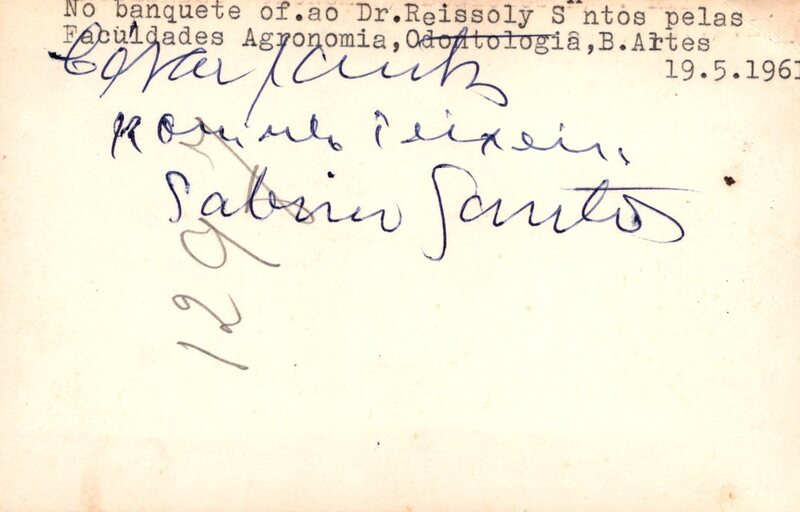 No banquete of.ao Dr.Reissoly S ntos pelas
Faculdades Agronomia,Odontologia,B.Artes
19.5.1961
César Santos
Romulo Teixeira
Sabino Santos
129